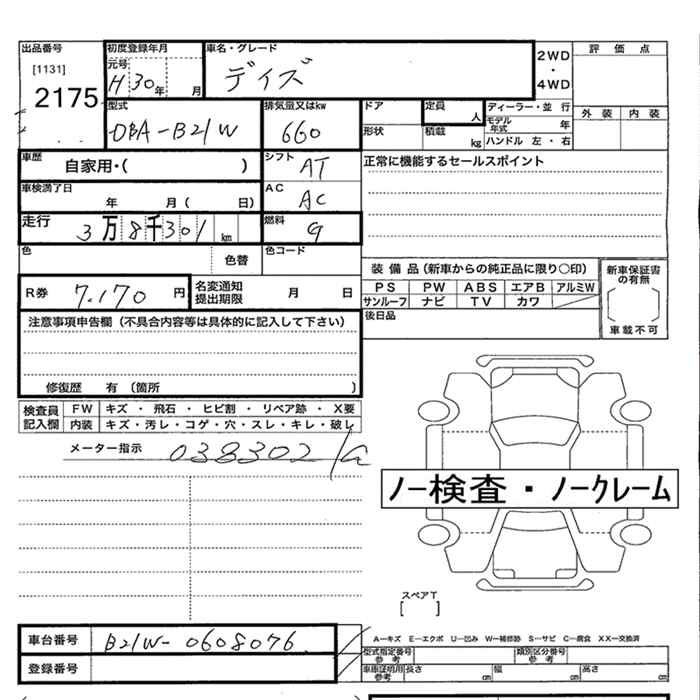 出品番号 初度登録年月 車名・グレード 2WD ・ 4WD 評価点
[1131] 元号 H30年 月 デイズ
2175
型式 排気量又はkw ドア 定員 人 ディーラー・並行 外装 内装
DBA-B21W 660 形状 積載 kg モデル年式 年
ハンドル 左・右
車歴 自家用・( ) シフト AT 正常に機能するセールスポイント
車検満了日 年 月( 日) AC AC
走行 3万8千301 km 燃料 G
色 色替 色コード
装備品(新車からの純正品に限り○印) 新車保証書の有無
R券 7,170円 名変通知提出期限 月 日 PS PW ABS エアB アルミW
サンルーフ ナビ TV カワ
注意事項申告欄(不具合内容等は具体的に記入して下さい) 後日品 車載不可
修復歴 有(箇所 )
検査員記入欄 FW キズ・飛石・ヒビ割・リペア跡・X要
内装 キズ・汚レ・コゲ・穴・スレ・キレ・破レ
メーター指示 038302
ノー検査・ノークレーム
スペアT
[ ]
車台番号 B21W-0608076
A―キズ E―エクボ U―凹み W―補修跡 S―サビ C―腐食 XX―交換済
登録番号
型式指定番号 参考 類別区分番号 参考
車庫証明用 参考 長さ cm 幅 cm 高さ cm